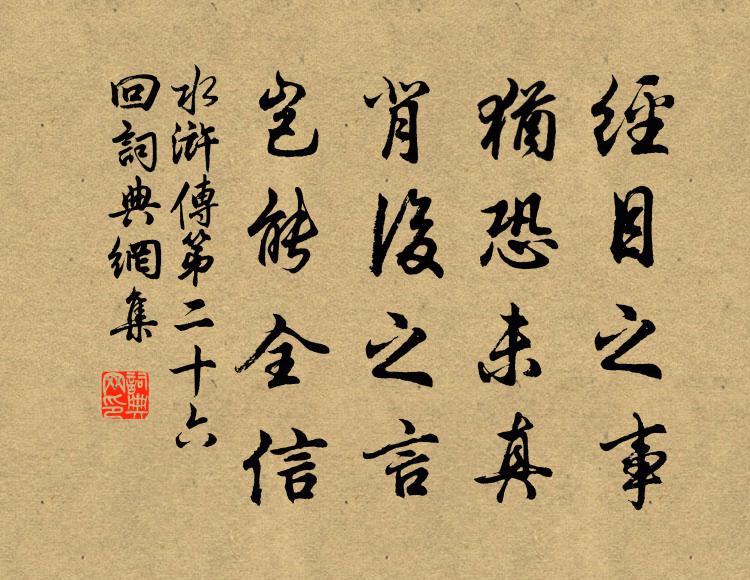 經目之事
猶恐未真
背後之言
豈能全信
水滸傳第二十六
回詞典網集
詞典網印